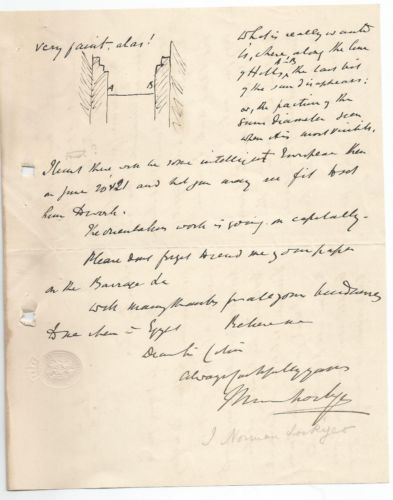 very faint alas!
A B
What is really wanted
is, where, along the line
of Hills, A-B the last bit
of the sun disappears:
or, the portion of the
Suns diameter seen
when it is most visible.
there will be some intelligent European then
on June 20 & 21 and that you may see fit to set
him to work.
The orientation work is going on capitally.
Please dont forget to send me your paper
on the Barrage &c
With many thanks for all your kindnesses
to me when in Egypt Believe me
Dear
Always faithfully yours
J Norman Lockyer